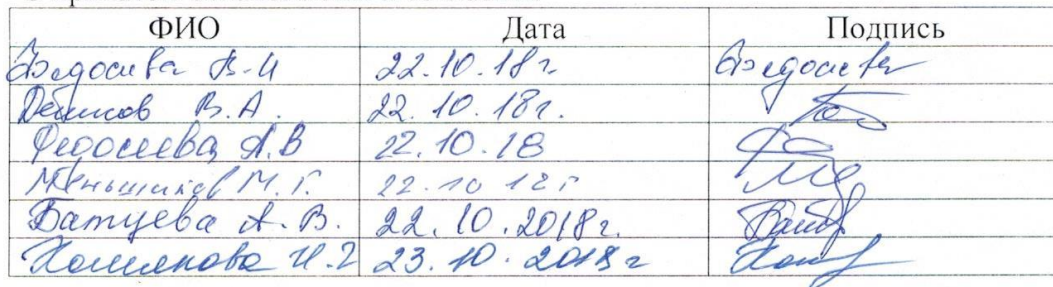 ФИО Дата Подпись
Федосеева В.И 22.10.18г. Федосеева
Денисов В.А. 22.10.18г.
Федосеева А.В 22.10.18
Меньшиков М.Г. 22.10 18г
Батуева А.В. 22.10.2018г.
23.10.2018г